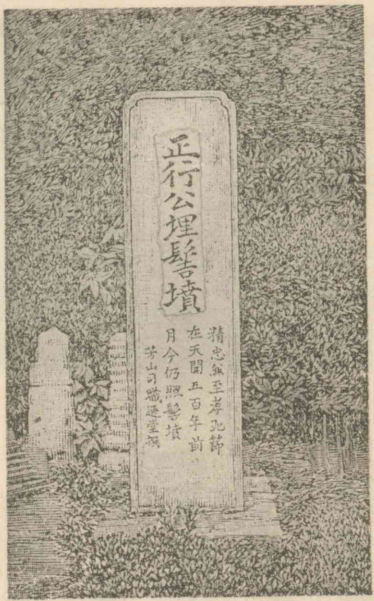 正行公埋髻墳
精忠 至孝 節
在天 五百年前
月今仍照髻墳
芳山司職